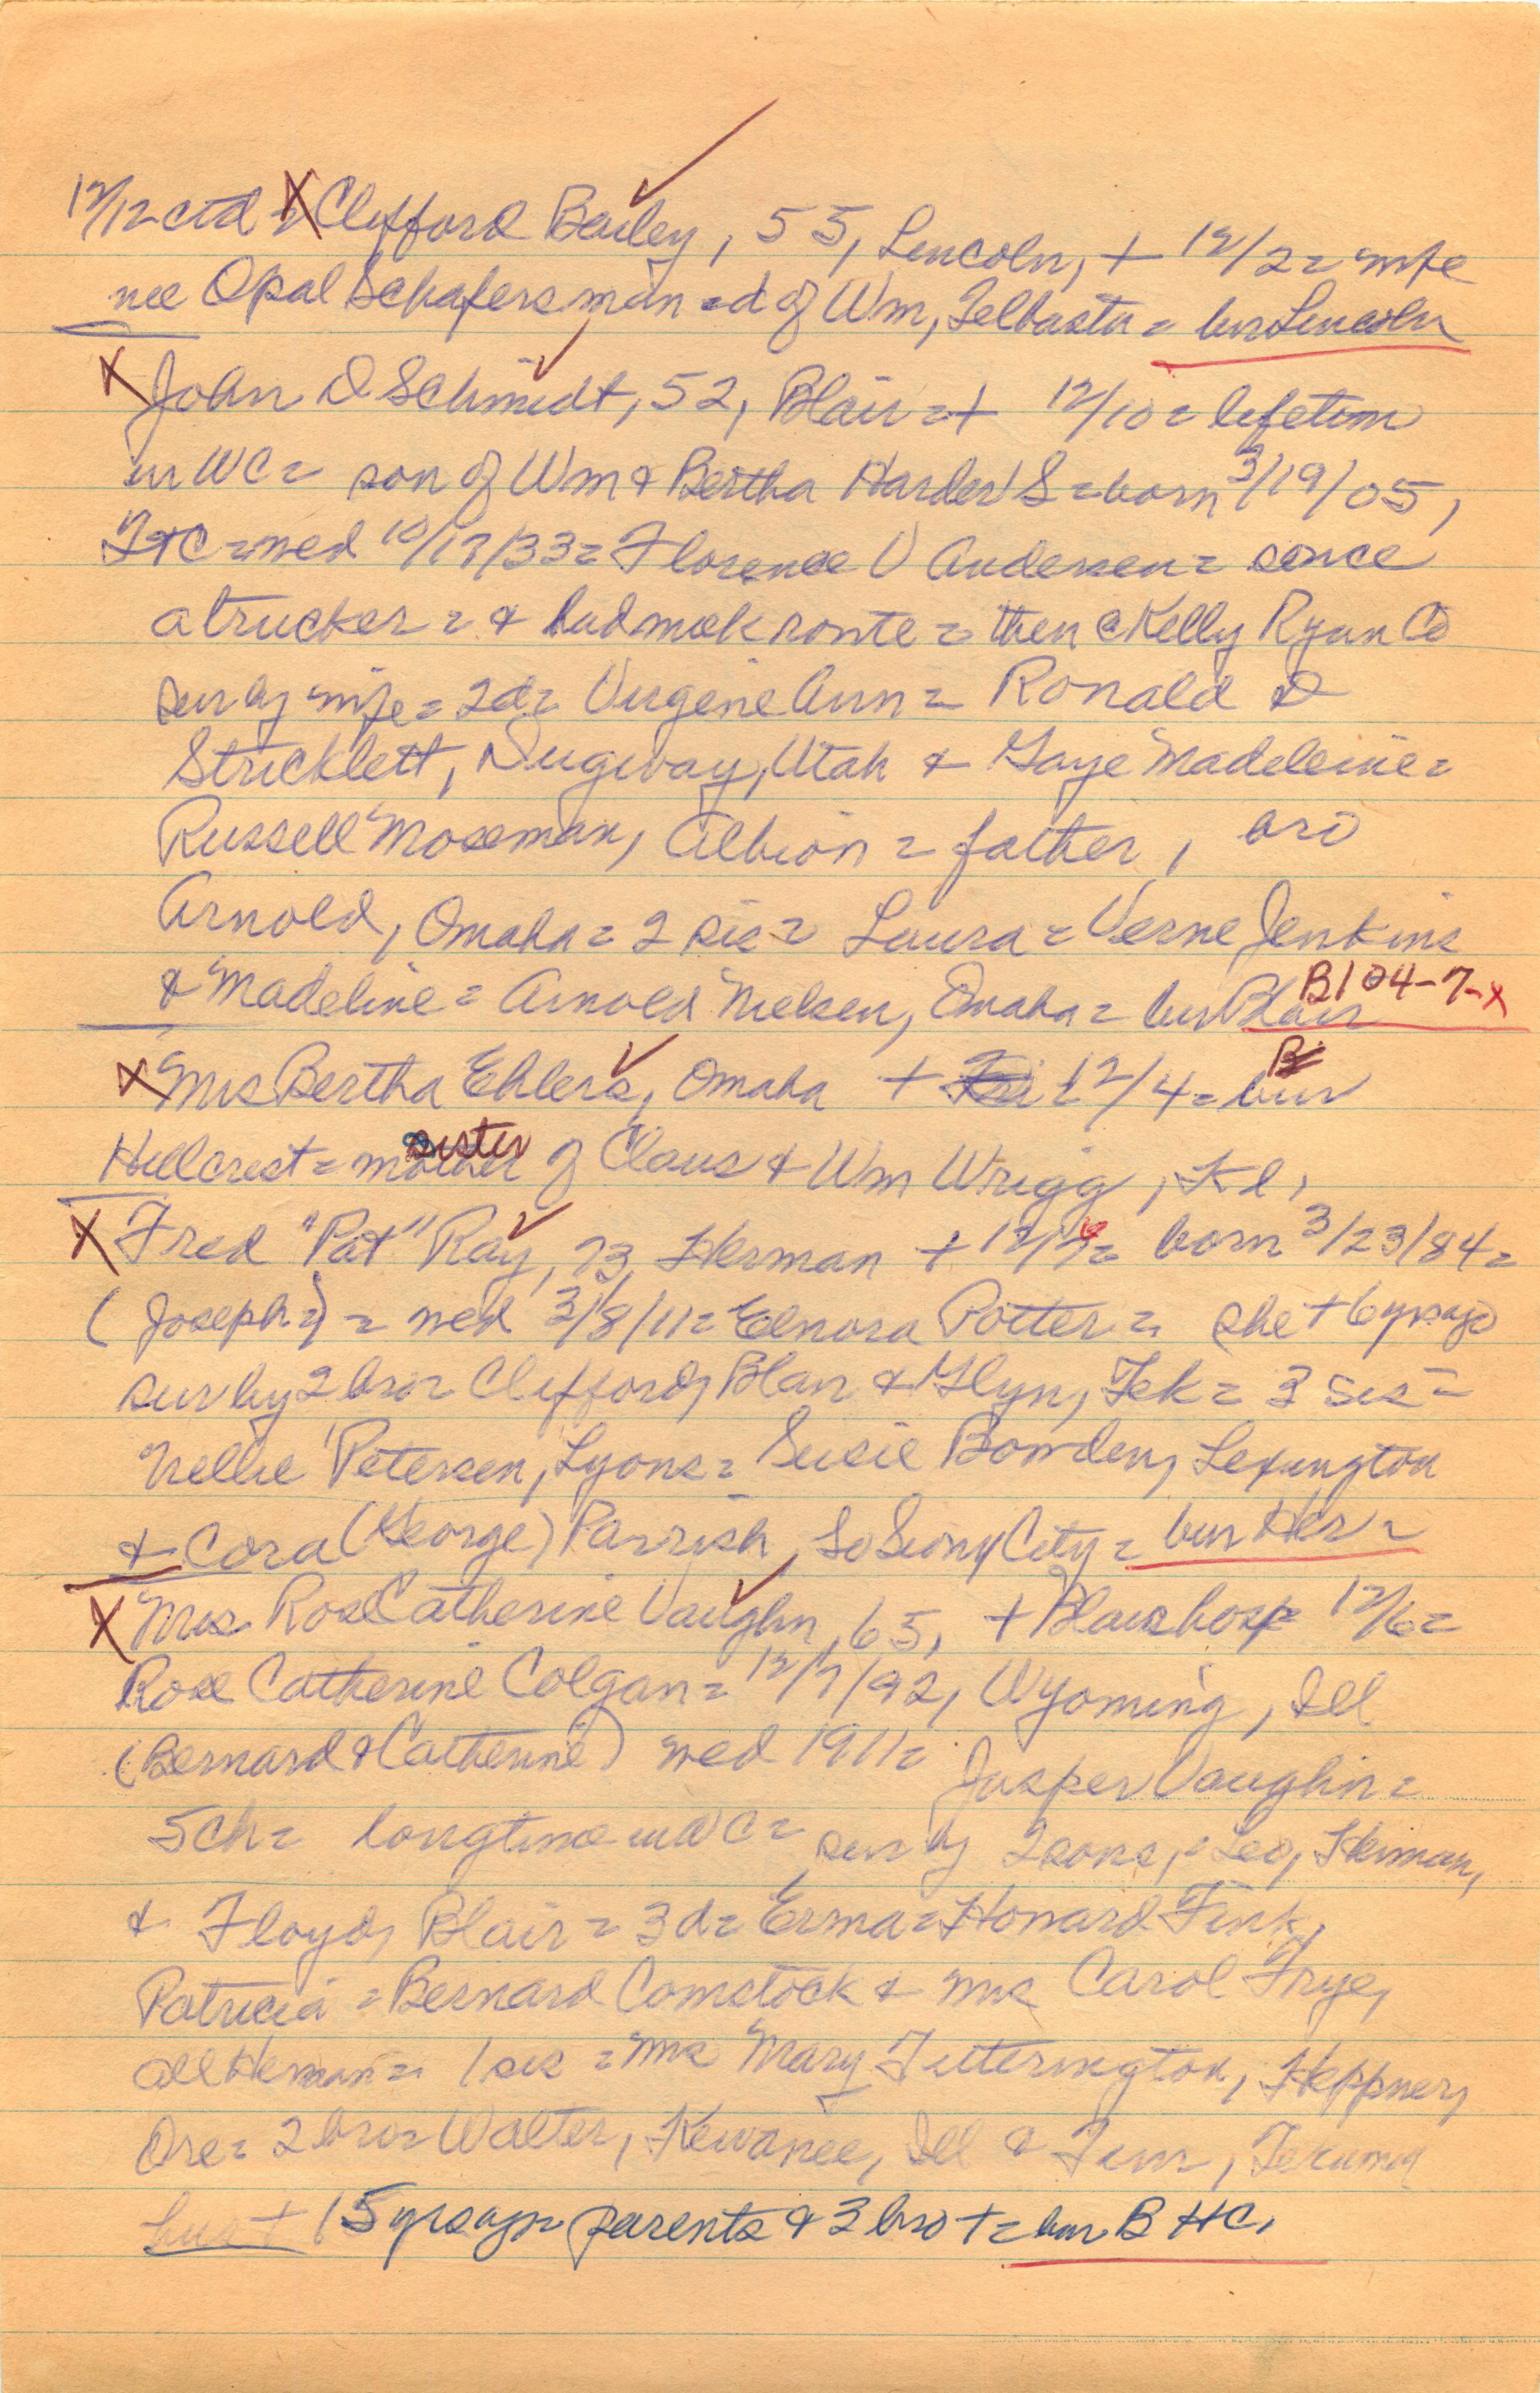 12/12 ctd = X Clifford Bailey, 55, Lincoln, + 12/2 = wife
nee Opal Schafersman = d of Wm, Telbasta = bur Lincoln
X John D Schmidt, 52, Blair = + 12/10 = lifetim
in WC = son of Wm & Bertha Harder S = born 3/19/05,
T&C = wed 10/17/33 = Florence V Andersen = since
a trucker = & had milk route = then c Kelly Ryan Co
sur by wife = 2d = Virgene Ann = Ronald D
Stricklett, Dugway, Utah & Gaye Madeleine =
Russell Moseman, Albion = father, bro
Arnold, Omaha = 2 sis = Laura = Verne Jenkins
& Madeline = Arnold Nielsen, Omaha = bur Blair B104-7-x
X Mrs Bertha Ehlers, Omaha + 12/4 = bur
Hillcrest = mother sister of Claus & Wm Wrigg, Kl,
X Fred "Pat" Ray, 73, Herman + 12/ = born 3/23/84 =
(Joseph =) = wed 3/8/11 = Elnora Potter = she + 6 yrs ago
sur by 2 bro = Clifford, Blair & Glyn, Tek = 3 sis =
Nellie Petersen, Lyons = Susie Bowden, Lexington
& Cora (George) Parrish, So Sioux City = bur Her =
X Mrs Rose Catherine Vaughn, 65, + Blair hosp 12/6 =
Rose Catherine Colgan = 12/7/92, Wyoming, Ill
(Bernard & Catherine) wed 1911 = Jasper Vaughn =
5ch = longtime in WC = sur by 2 sons, Leo, Herman,
& Floyd, Blair = 3d = Erma = Howard Fink,
Patricia = Bernard Comstock & Mrs Carol Frye,
all Herman = 1 sis = Mrs Mary Titterington, Heppner,
Ore = 2 bro = Walter, Kewanee, Ill & Jim, Tekamah
hus + 15 yrs ago = parents & 3 bro + = bur B HC,